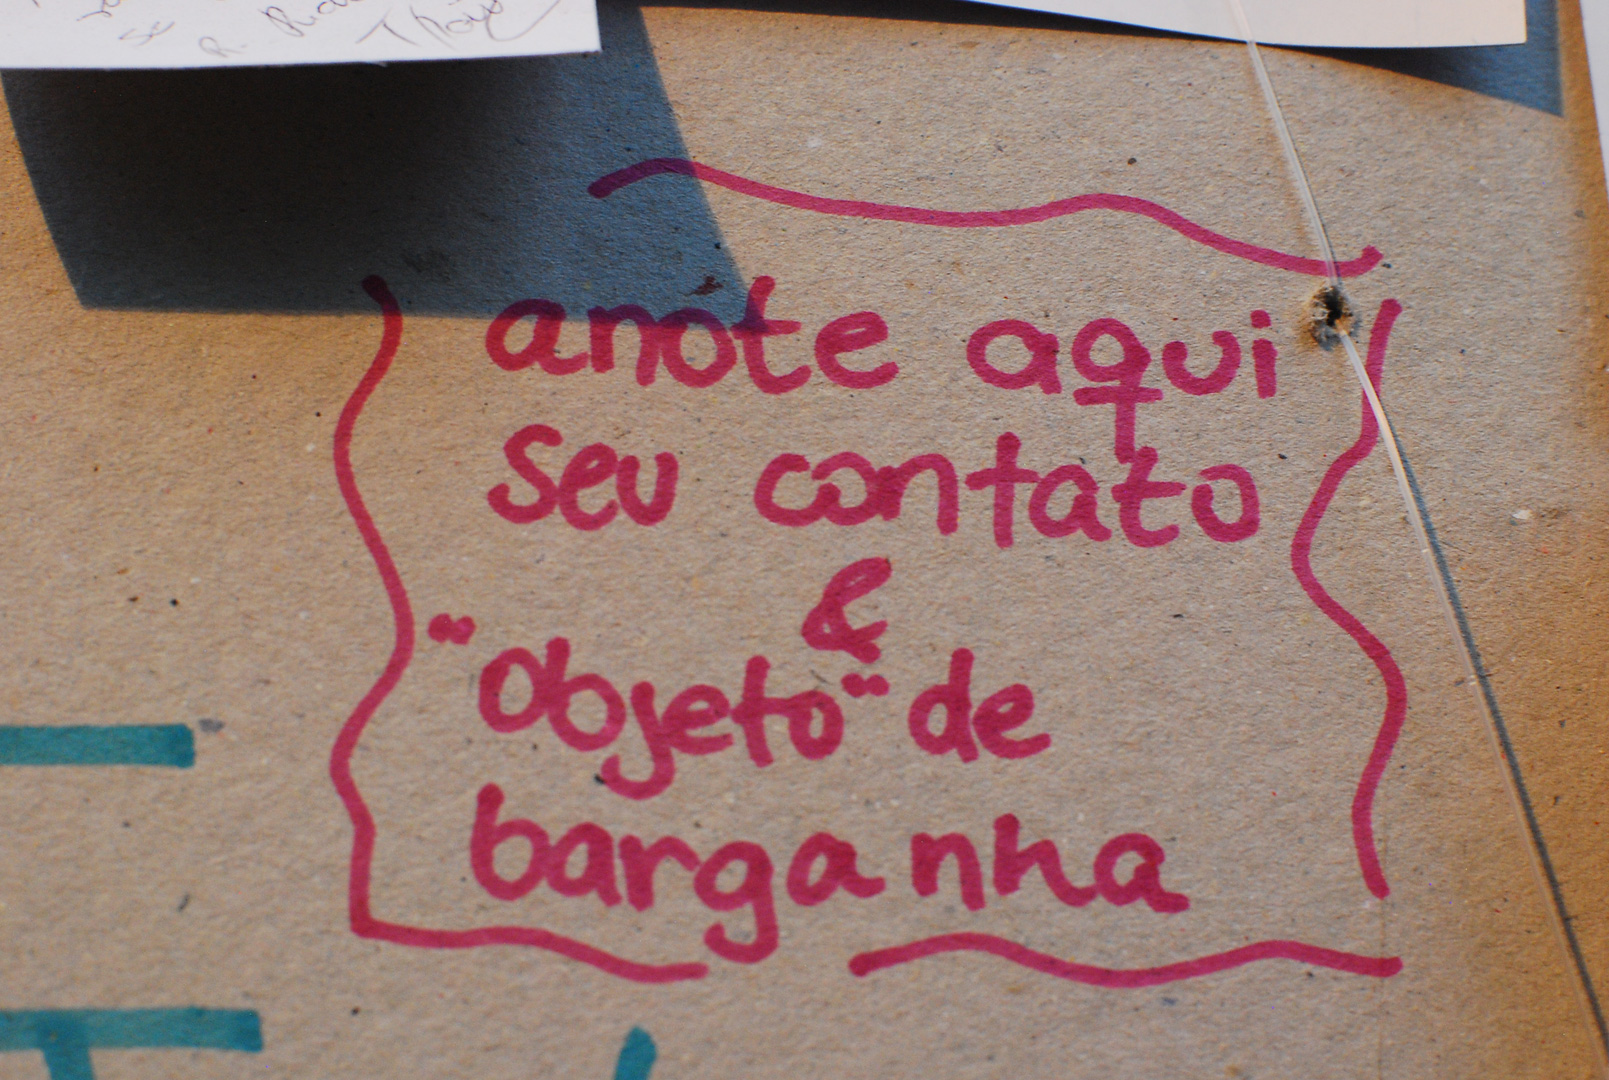 anote aqui
seu contato
&
"objeto" de
barganha